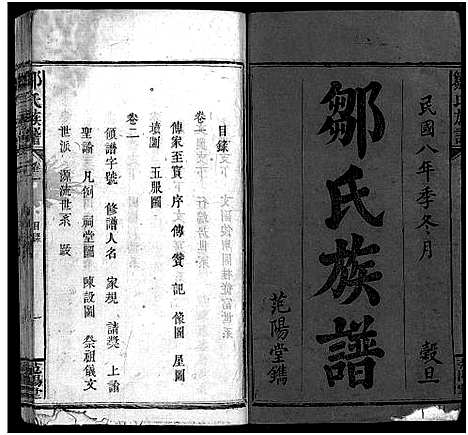 民國八年季冬月 穀旦
鄒氏族譜
范陽堂鐫
目錄
卷一
傳家至寶 序 傳 贊 記 像圖 屋圖
墳圖 五服圖
卷二
領譜字號 修譜人名 家規 請獎 上諭
聖諭 凡例 祠堂圖 陳設圖 祭祖儀文
世派 源流世系 跋
鄒氏族譜
目錄
范陽堂